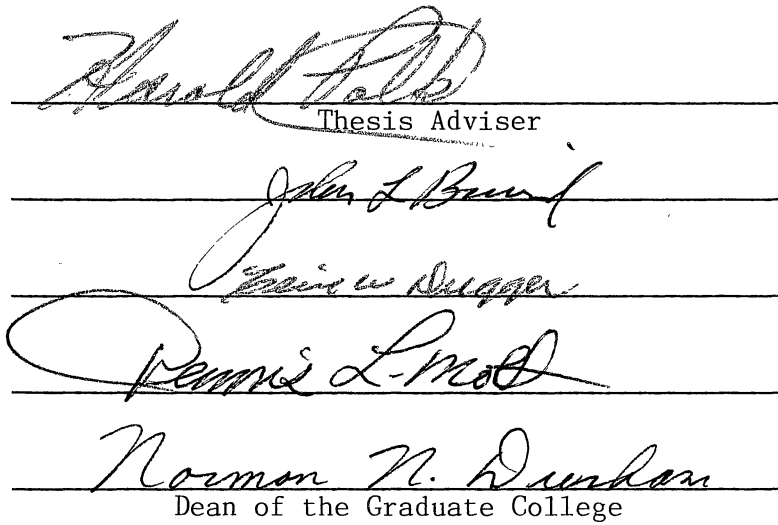 Harold Polk
Thesis Adviser
John L
Dugger
Dennis L. Mott
Norman N. Durham
Dean of the Graduate College